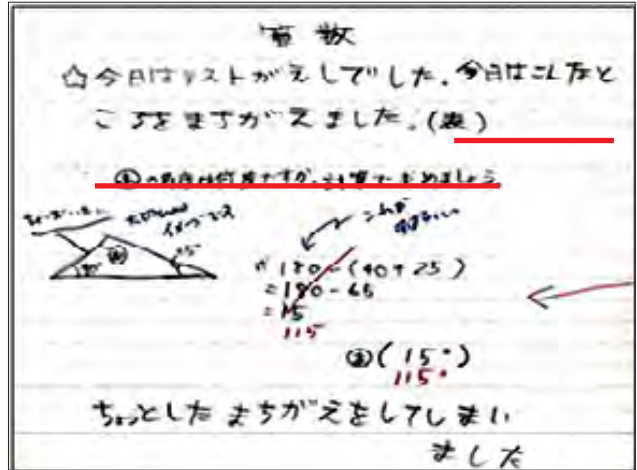 算数
☆今日はテストがえしでした。今日はこんなと
ころをまちがえました。(表)
あの角度は何度ですか。計算でもとめましょう
180-(40+25)
=180-65
=15
115
あ(15°)
115°
ちょっとしたまちがえをしてしまい
ました